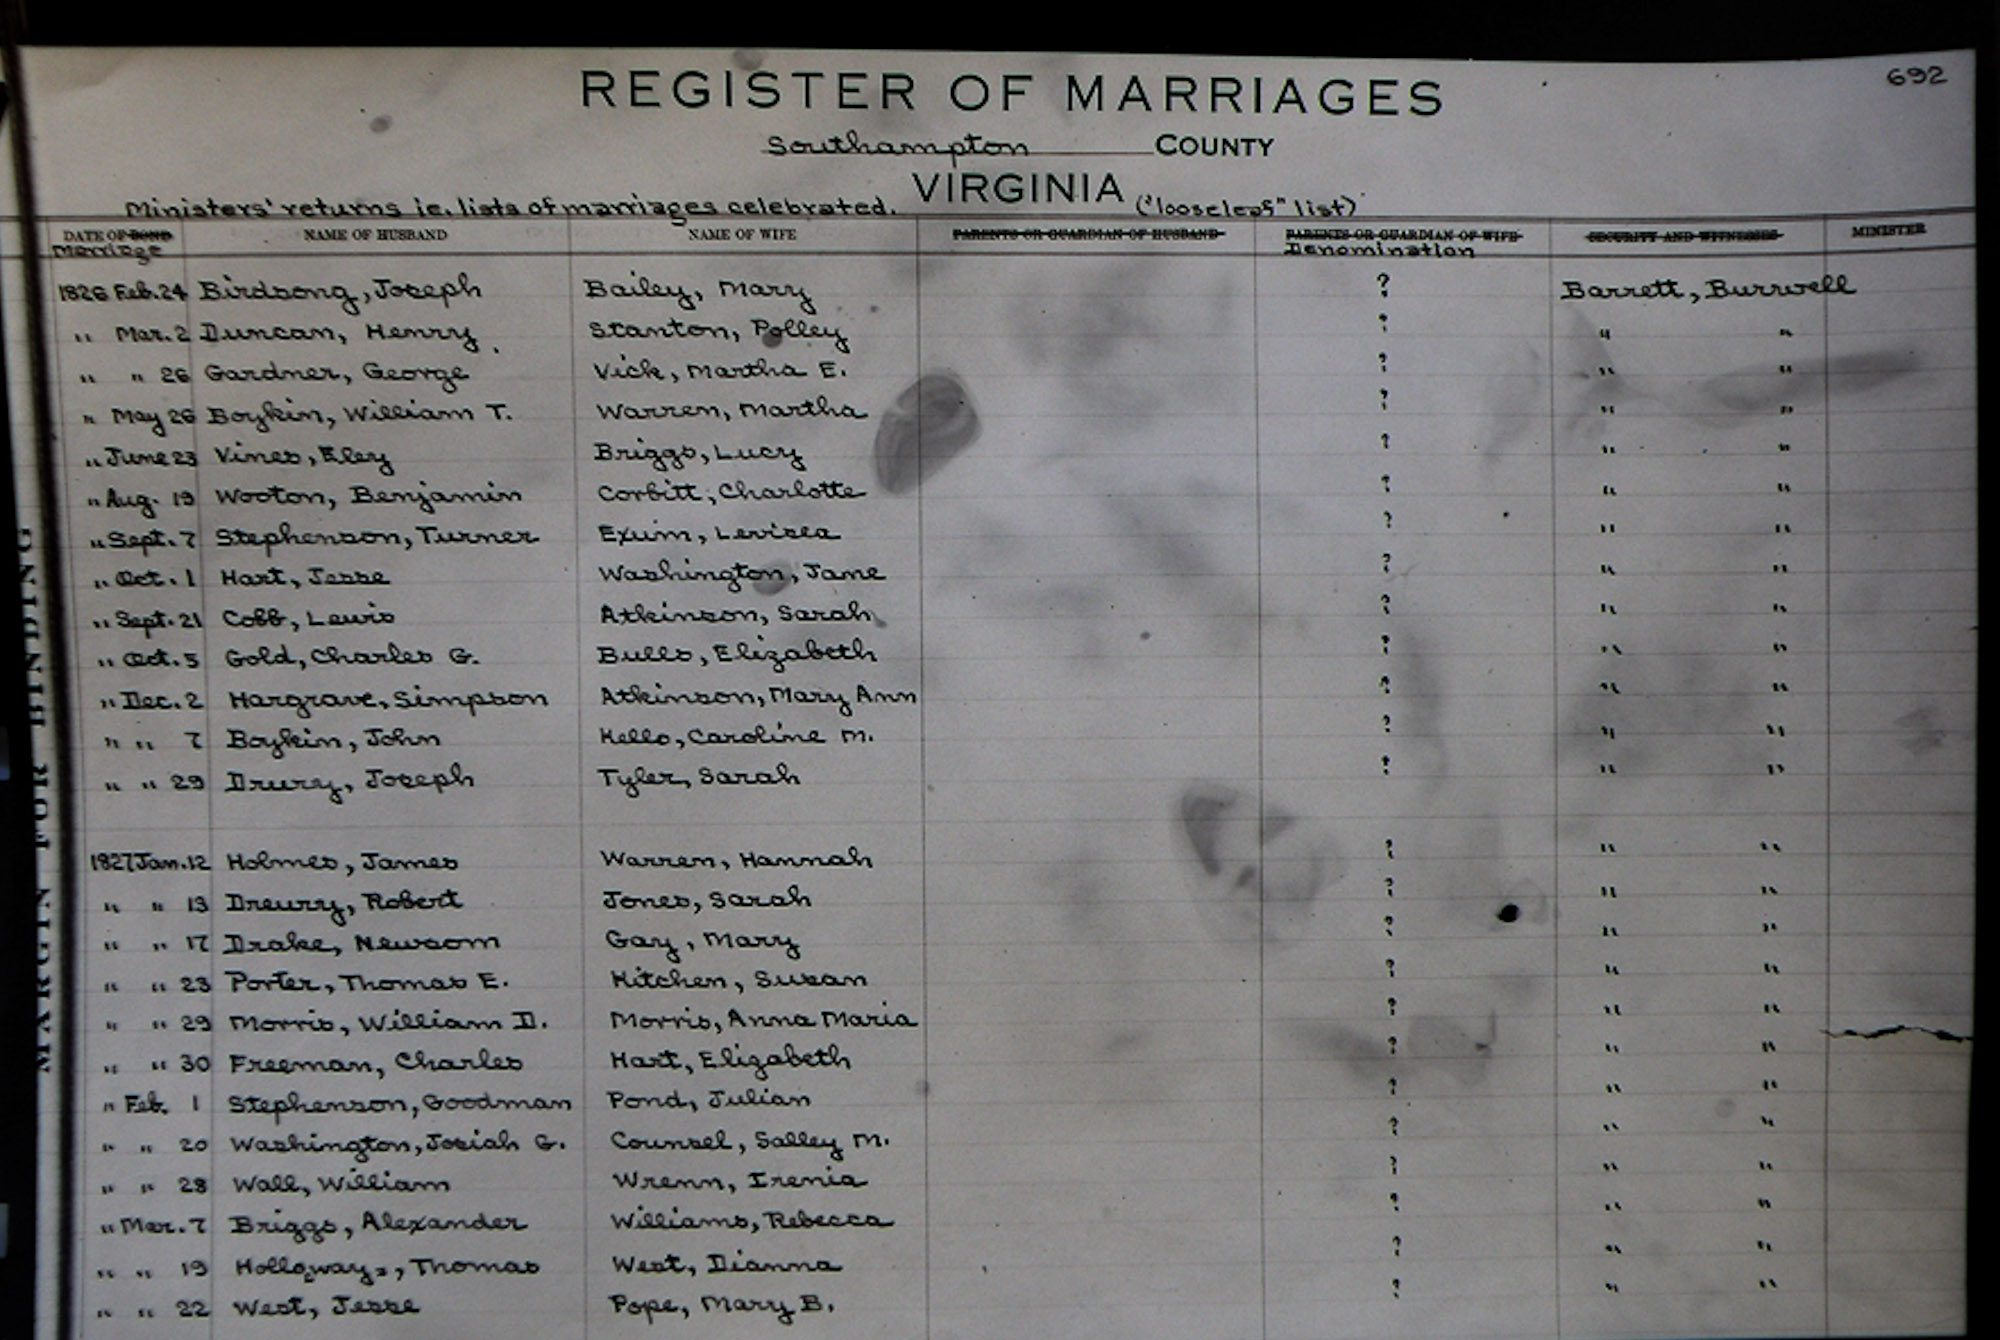 692
REGISTER OF MARRIAGES
Southampton COUNTY
VIRGINIA
Ministers' returns ie. lists of marriages celebrated. ("looseleaf" list)
DATE OF BOND NAME OF HUSBAND NAME OF WIFE PARENTS OR GUARDIAN OF HUSBAND PARENTS OR GUARDIAN OF WIFE SECURITY AND WITNESSES MINISTER
Marriage Denomination
1826 Feb. 24 Birdsong, Joseph Bailey, Mary ? Barrett, Burwell
" Mar. 2 Duncan, Henry Stanton, Polley ? " "
" " 26 Gardner, George Vick, Martha E. ? " "
" May 26 Boykin, William T. Warren, Martha ? " "
" June 23 Vines, Eley Briggs, Lucy ? " "
" Aug. 19 Wooton, Benjamin Corbitt, Charlotte ? " "
" Sept. 7 Stephenson, Turner Exum, Levisea ? " "
" Oct. 1 Hart, Jesse Washington, Jane ? " "
" Sept. 21 Cobb, Lewis Atkinson, Sarah ? " "
" Oct. 5 Gold, Charles G. Bulls, Elizabeth ? " "
" Dec. 2 Hargrave, Simpson Atkinson, Mary Ann ? " "
" " 7 Boykin, John Kello, Caroline M. ? " "
" " 29 Drury, Joseph Tyler, Sarah ? " "
1827 Jan. 12 Holmes, James Warren, Hannah ? " "
" " 13 Drewry, Robert Jones, Sarah ? " "
" " 17 Drake, Newsom Gay, Mary ? " "
" " 23 Porter, Thomas E. Kitchen, Susan ? " "
" " 29 Morris, William D. Morris, Anna Maria ? " "
" " 30 Freeman, Charles Hart, Elizabeth ? " "
" Feb. 1 Stephenson, Goodman Pond, Julian ? " "
" " 20 Washington, Josiah G. Counsel, Salley M. ? " "
" " 28 Wall, William Wrenn, Irenia ? " "
" Mar. 7 Briggs, Alexander Williams, Rebecca ? " "
" " 19 Holloway, Thomas West, Dianna ? " "
" " 22 West, Jesse Pope, Mary B. ? " "
MARGIN FOR BINDING